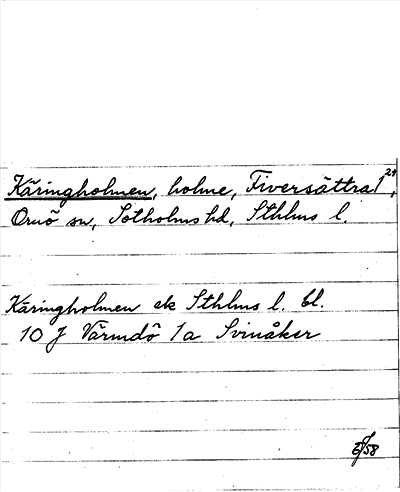 Käringholmen, holme, Fiversättra 1²⁴,
Ornö sn, Sotholms hd, Sthlms l.
Käringholmen ek Sthlms l. bl.
10 J Värmdö 1a Svinåker